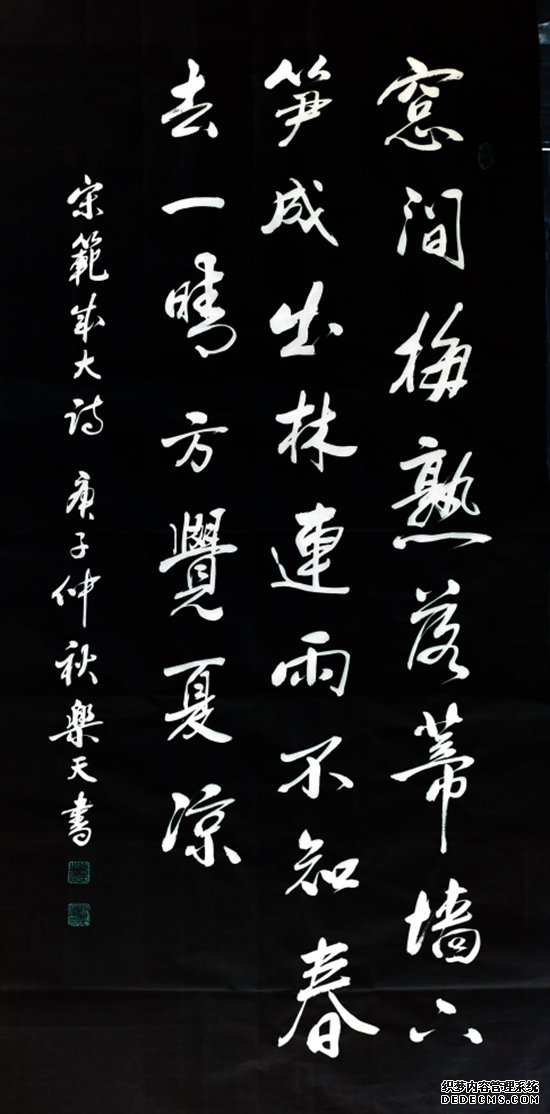 窓间梅熟落蒂墙下
笋成出林連雨不知春
去一晴方覺夏凉
宋範成大诗 庚子仲秋樂天書
织梦内容管理系统
DEDECMS.COM